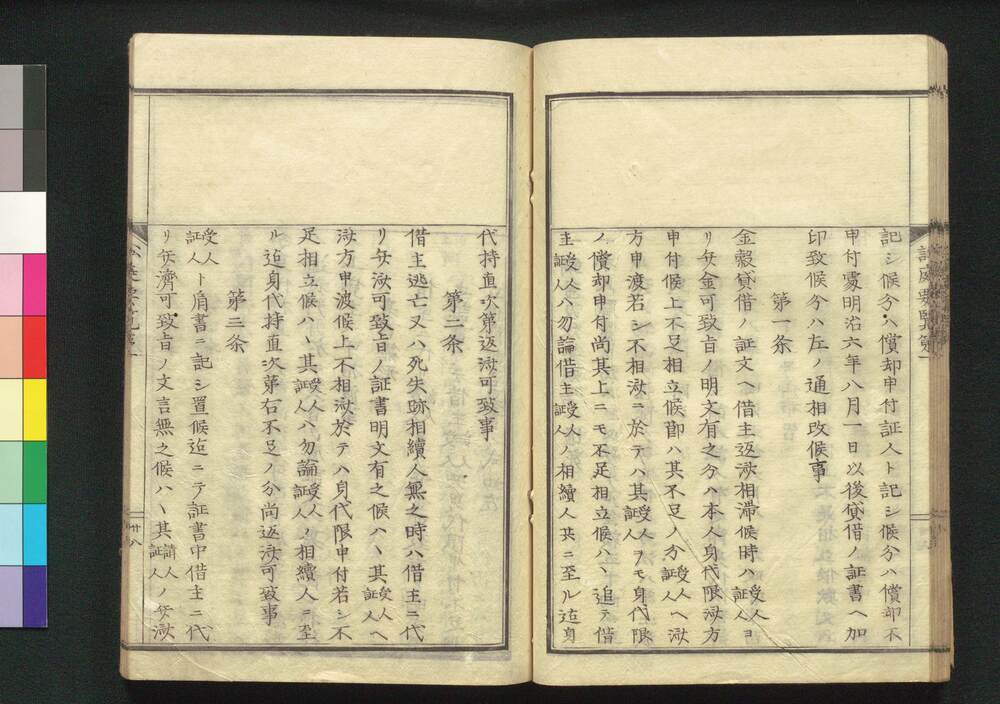 記シ候分ハ償却申付証人ト記シ候分ハ償却不
申付處明治六年八月一日以後貸借ノ証書ヘ加
印致候分ハ左ノ通相改候事
第一条
金穀貸借ノ証文ヘ借主返済相滞候時ハ受人証人ヨ
リ弁金可致旨ノ明文有之分ハ本人身代限済方
申付候上不足相立候節ハ其不足ノ分受人証人ヘ済
方申渡若シ不相済ニ於テハ其受人証人ヲモ身代限
ノ償却申付尚其上ニモ不足相立候ハヽ追テ借
主受人証人ハ勿論借主受人証人ノ相續人共ニ至ル迄身
代持直次第返済可致事
第二条
借主逃亡又ハ死失跡相續人無之時ハ借主ニ代
リ弁済可致旨ノ証書明文有之候ハヽ其受人証人ヘ
済方申渡候上不相済於テハ身代限申付若シ不
足相立候ハヽ其受人証人ハ勿論受人証人ノ相續人ニ至
ル迄身代持直次第右不足ノ分尚返済可致事
第三条
受人証人ト肩書ニ記シ置候迄ニテ証書中借主ニ代
リ弁濟可致旨ノ文言無之候ハヽ其請人証人ノ弁済
廿八